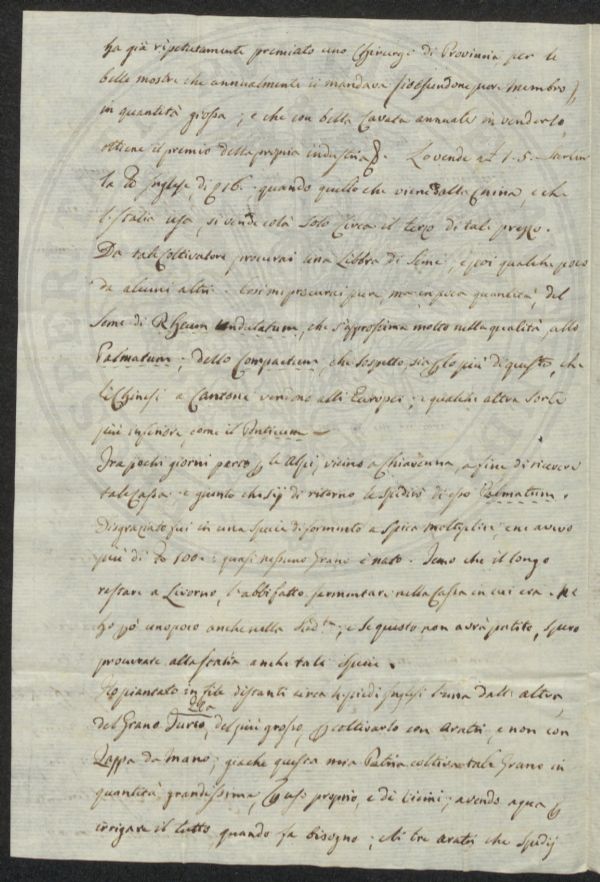 ha già ripetutamente premiato uno Chirurgo di Provincia, per le
belle mostre che annualmente li mandava (essendone pure membro),
in quantità grossa; e che con bella Cavata annuale in venderlo,
ottiene il premio della propria industria. Lo vende a 1.5. Sterlin
la ℔ Inglese, di 16. quando quello che viene dalla China, e che
l'Italia usa, si vende colà solo Circa il terzo di tale prezzo.
Da tale Coltivatore procurai una Libbra di Seme, e poi qualche poco
da alcuni altri. Così mi procurai pure, ma in poca quantità, del
Seme di Rheum undulatum, che s'approssima molto nella qualità, allo
Palmatum; dello Compactum, che sospetto, sia lo più di questo, che
li Chinesi a Cantone vendono alli Europei; e qualche altra Sorte
più inferiore, come il Ponticum.—
Fra pochi giorni parto le Alpi, vicino a Chiavenna, a fine di ricevere
tale Cassa: e giunto che sij di ritorno le spedirò di esso Palmatum.
Disgraziato fui in una specie di formento a spica moltiplice, che avevo
più di ℔ 100.: quasi nessuno Grano è nato. Temo che il longo
restare a Livorno, l'abbi fatto fermentare nella Cassa in cui era. Ne
ho però un poco anche nella; e se questo non avrà patito, spero
procurare alla Italia anche tale specie.
Ho piantato in file distanti circa piedi Inglesi l'una dall'altra,
del Grano Turco, del più grosso, coltivarlo con Aratri, e non con
Zappa da mano; giache questa mia Patria coltiva tale Grano in
quantità grandissima, uso proprio, e di Vicini; avendo aqua
irrigare il tutto quando fa bisogno; Alli tre Aratri che spedij